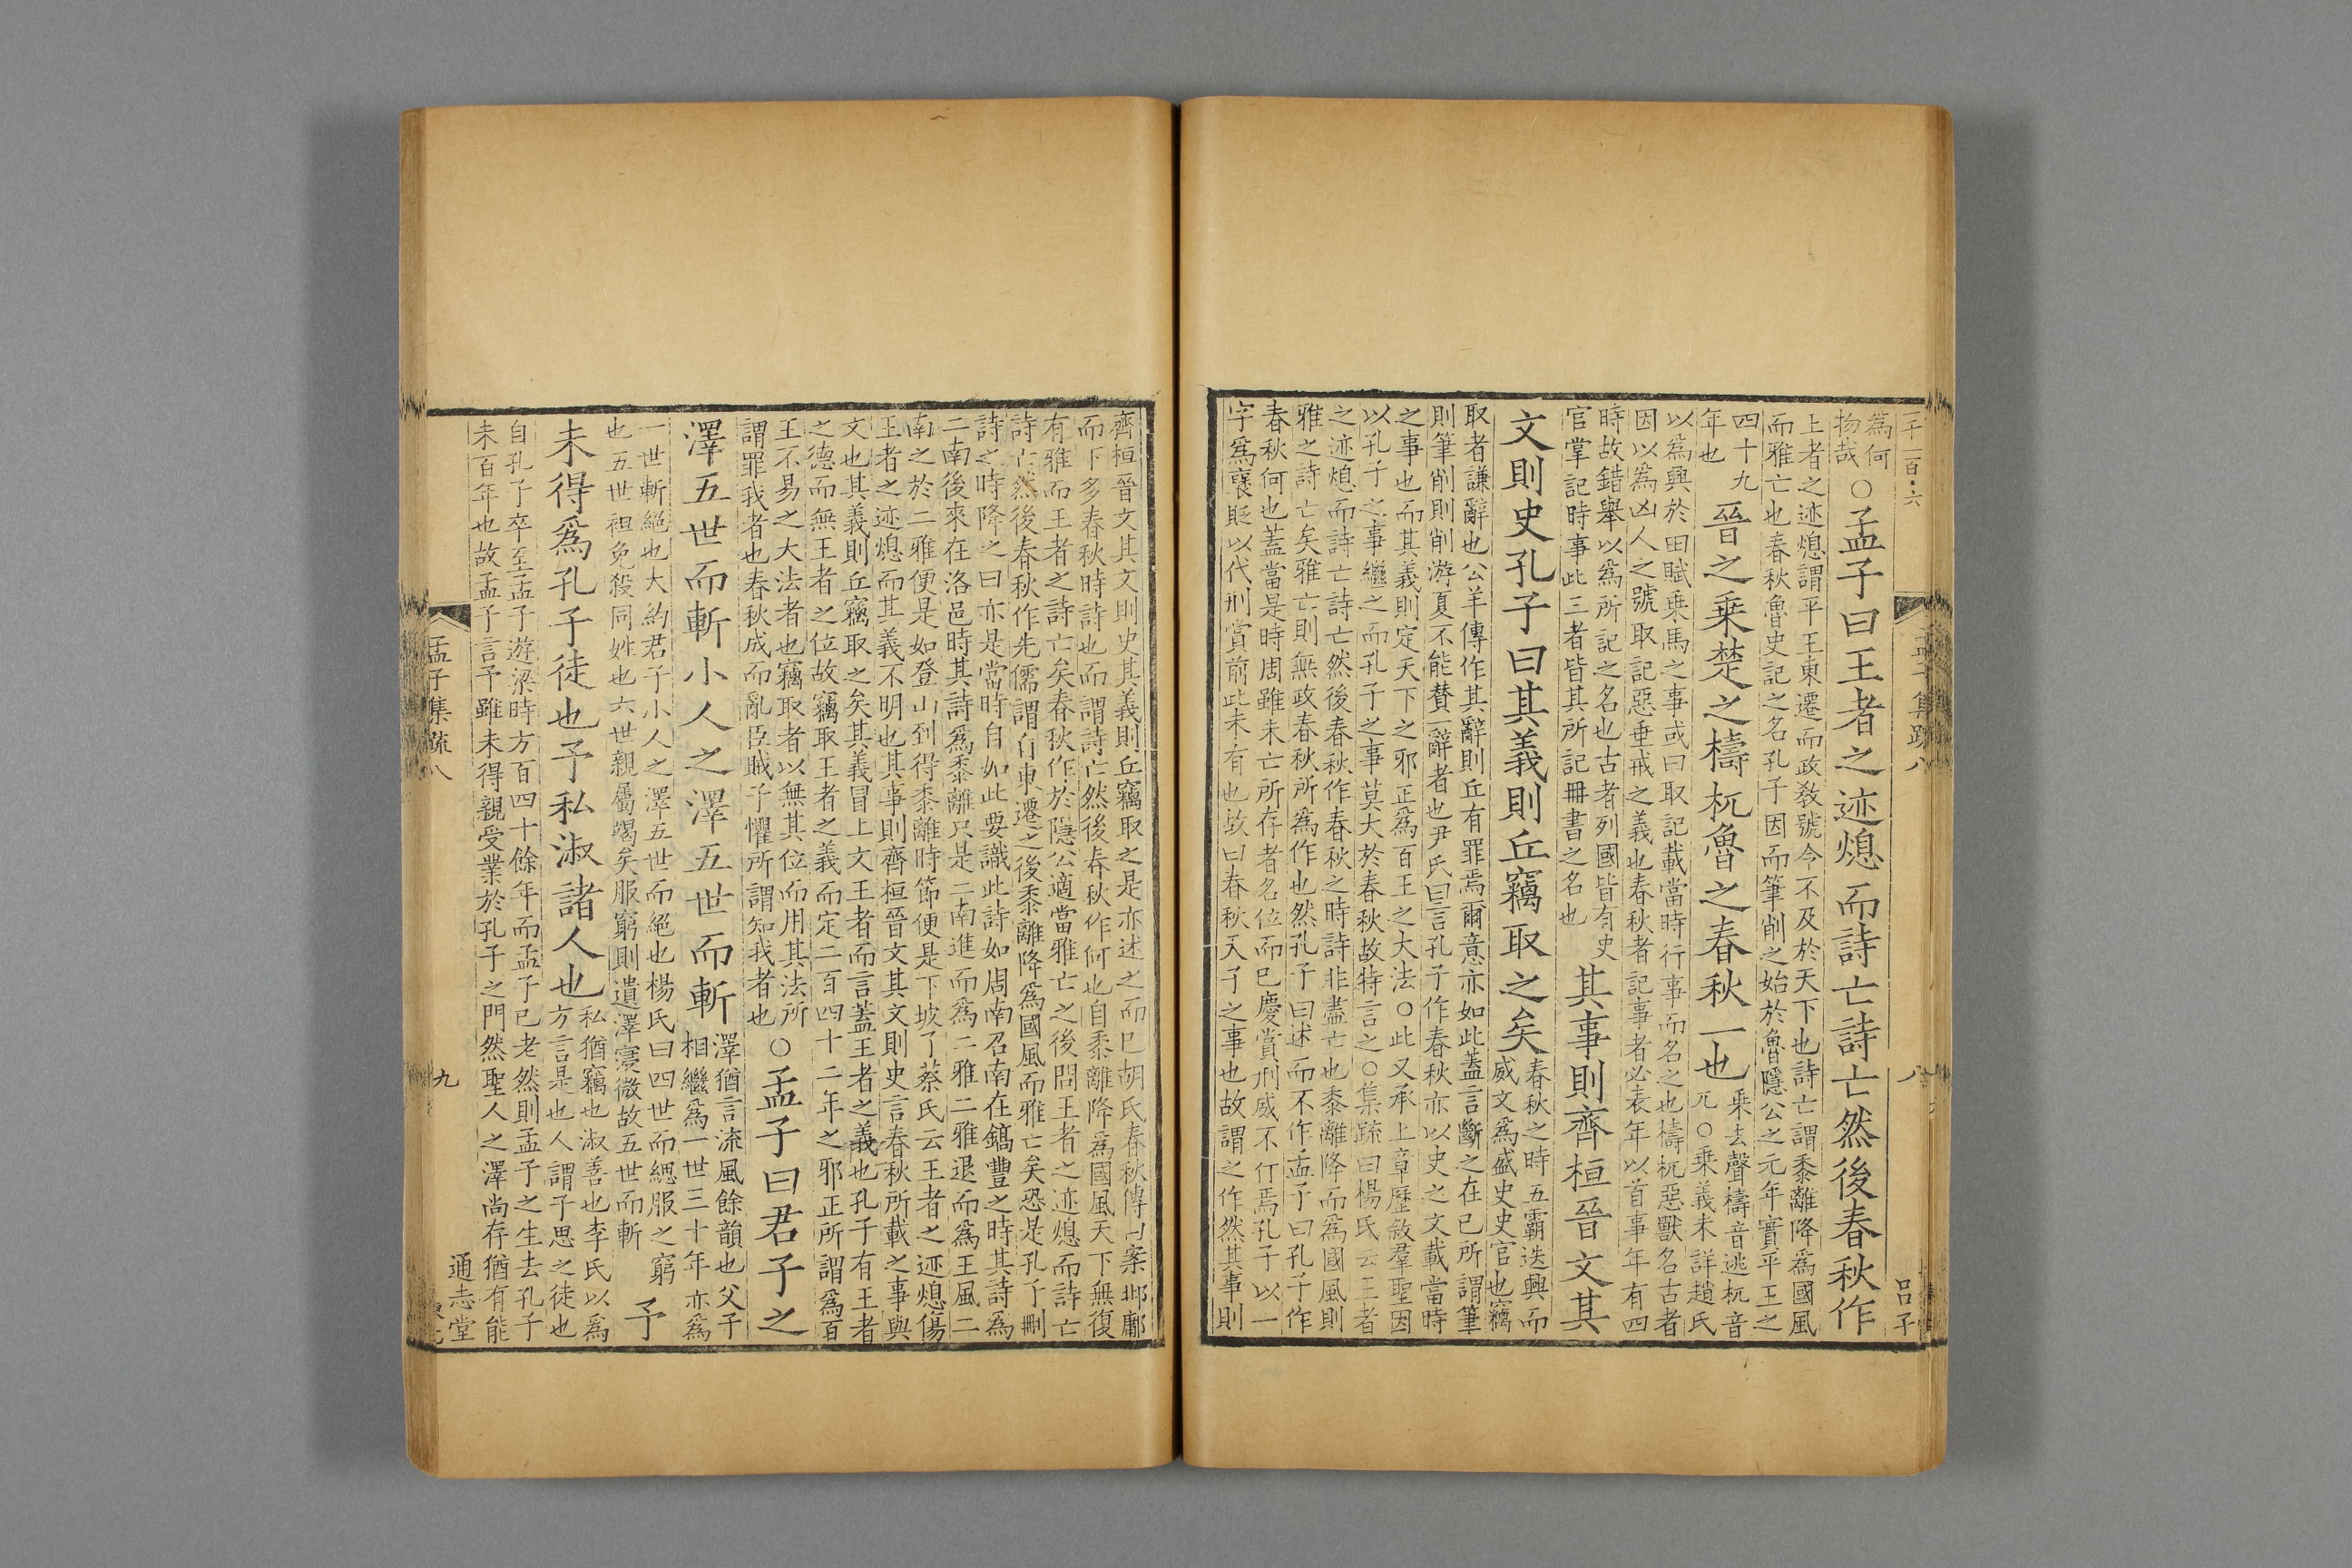 二千一百·六
孟子集疏八
八
呂子
爲何
物哉
○孟子曰王者之迹熄而詩亡詩亡然後春秋作
上者之迹熄謂平王東遷而政敎號令不及於天下也詩亡謂黍離降爲國風
而雅亡也春秋魯史記之名孔子因而筆削之始於魯隱公之元年實平王之
四十九
年也
晉之乗楚之檮杌魯之春秋一也
乗去聲檮音逃杌音
兀○乗義未詳趙氏
以爲興於田賦乗馬之事或曰取記載當時行事而名之也檮杌惡獸名古者
因以爲凶人之號取記惡垂戒之義也春秋者記事者必表年以首事年有四
時故錯舉以爲所記之名也古者列國皆有史
官掌記時事此三者皆其所記冊書之名也
其事則齊桓晉文其
文則史孔子曰其義則丘竊取之矣
春秋之時五霸迭興而
威文爲盛史史官也竊
取者謙辭也公羊傳作其辭則丘有罪焉爾意亦如此蓋言斷之在已所謂筆
則筆削則削游夏不能賛一辭者也尹氏曰言孔子作春秋亦以史之文載當時
之事也而其義則定天下之邪正爲百王之大法○此又承上章歷敘羣聖因
以孔子之事繼之而孔子之事莫大於春秋故特言之○集疏曰楊氏云王者
之迹熄而詩亡詩亡然後春秋作春秋之時詩非盡亡也黍離降而爲國風則
雅之詩亡矣雅亡則無政春秋所爲作也然孔子曰述而不作孟子曰孔子作
春秋何也蓋當是時周雖未亡所存者名位而已慶賞刑威不行焉孔子以一
字爲襃貶以代刑賞前此未有也故曰春秋天子之事也故謂之作然其事則
齊桓晉文其文則史其義則丘竊取之是亦述之而已胡氏春秋傳曰案邶鄘
而下多春秋時詩也而謂詩亡然後春秋作何也自黍離降爲國風天下無復
有雅而王者之詩亡矣春秋作於隱公適當雅亡之後問王者之迹熄而詩亡
詩亡然後春秋作先儒謂自東遷之後黍離降爲國風而雅亡矣恐是孔子刪
詩之時降之曰亦是當時自如此要識此詩如周南召南在鎬豐之時其詩爲
二南後來在洛邑時其詩爲黍離只是二南進而爲二雅二雅退而爲王風二
南之於二雅便是如登山到得黍離時節便是下坡了蔡氏云王者之迹熄傷
王者之迹熄而其義不明也其事則齊桓晉文其文則史言春秋所載之事與
文也其義則丘竊取之矣其義冒上文王者而言蓋王者之義也孔子有王者
之德而無王者之位故竊取王者之義而定二百四十二年之邪正所謂爲百
王不易之大法者也竊取者以無其位而用其法所
謂罪我者也春秋成而亂臣賊子懼所謂知我者也
○孟子曰君子之
澤五世而斬小人之澤五世而斬
澤猶言流風餘韻也父子
相繼爲一世三十年亦爲
一世斬絕也大約君子小人之澤五世而絕也楊氏曰四世而緦服之窮
也五世袒免殺同姓也六世親屬竭矣服窮則遺澤寖微故五世而斬
予
未得爲孔子徒也予私淑諸人也
私猶竊也淑善也李氏以爲
方言是也人謂子思之徒也
自孔子卒至孟子游梁時方百四十餘年而孟子已老然則孟子之生去孔子
未百年也故孟子言予雖未得親受業於孔子之門然聖人之澤尚存猶有能
孟子集疏八
九
通志堂